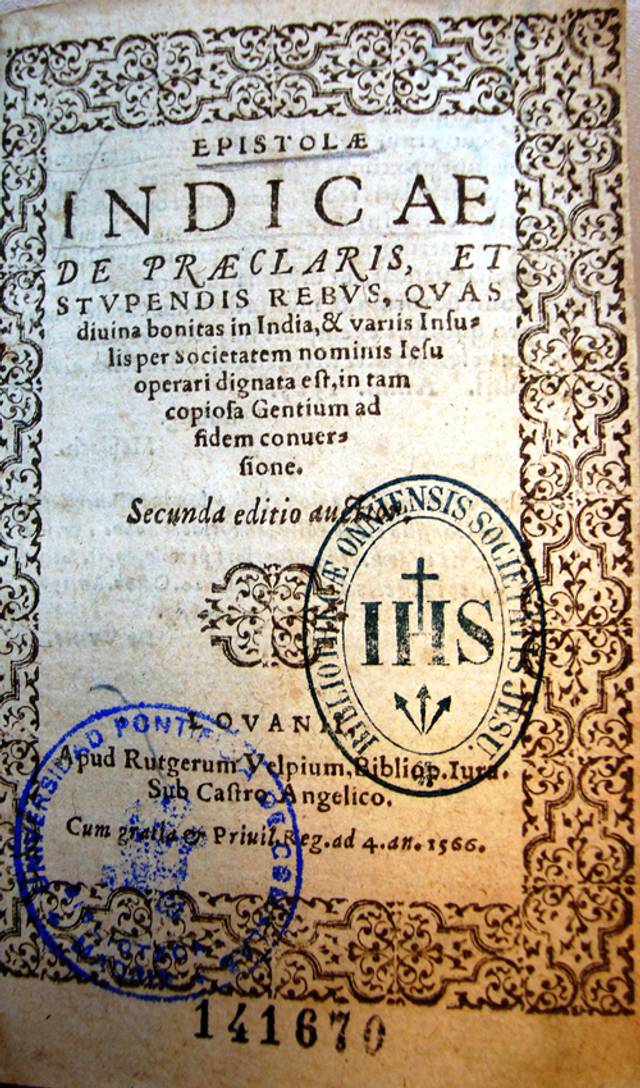 EPISTOLÆ
INDICAE
DE PRÆCLARIS, ET
STVPENDIS REBVS, QVAS
diuina bonitas in India, & variis Inſu⸗
lis per Societatem nominis Ieſu
operari dignata eſt, in tam
copioſa Gentium ad
fidem conuer⸗
ſione.
Secunda editio
BIBLIOTHECÆ ONNIENSIS SOCIETATIS JESU
IHS
LOVANII
Apud Rutgerum Velpium, Bibliop. Iura.
Sub Caſtro Angelico.
Cum gratia & Priuil. Reg. ad 4. an. 1566.
UNIVERSIDAD PONTIFICIA DE
141670